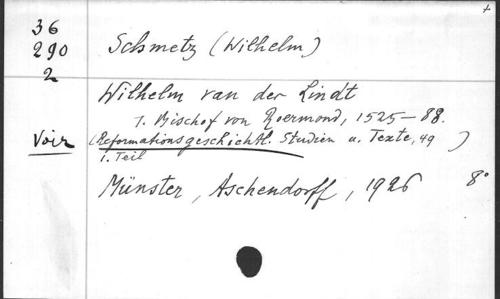 +
36
290
2
Schmetz (Wilhelm)
Wilhelm van der Lindt
1. Bischof von Roermond, 1525-88.
Voir (Reformationsgeschichtl. Studien u. Texte, 49)
1. Teil
Münster, Aschendorff, 1926 8°